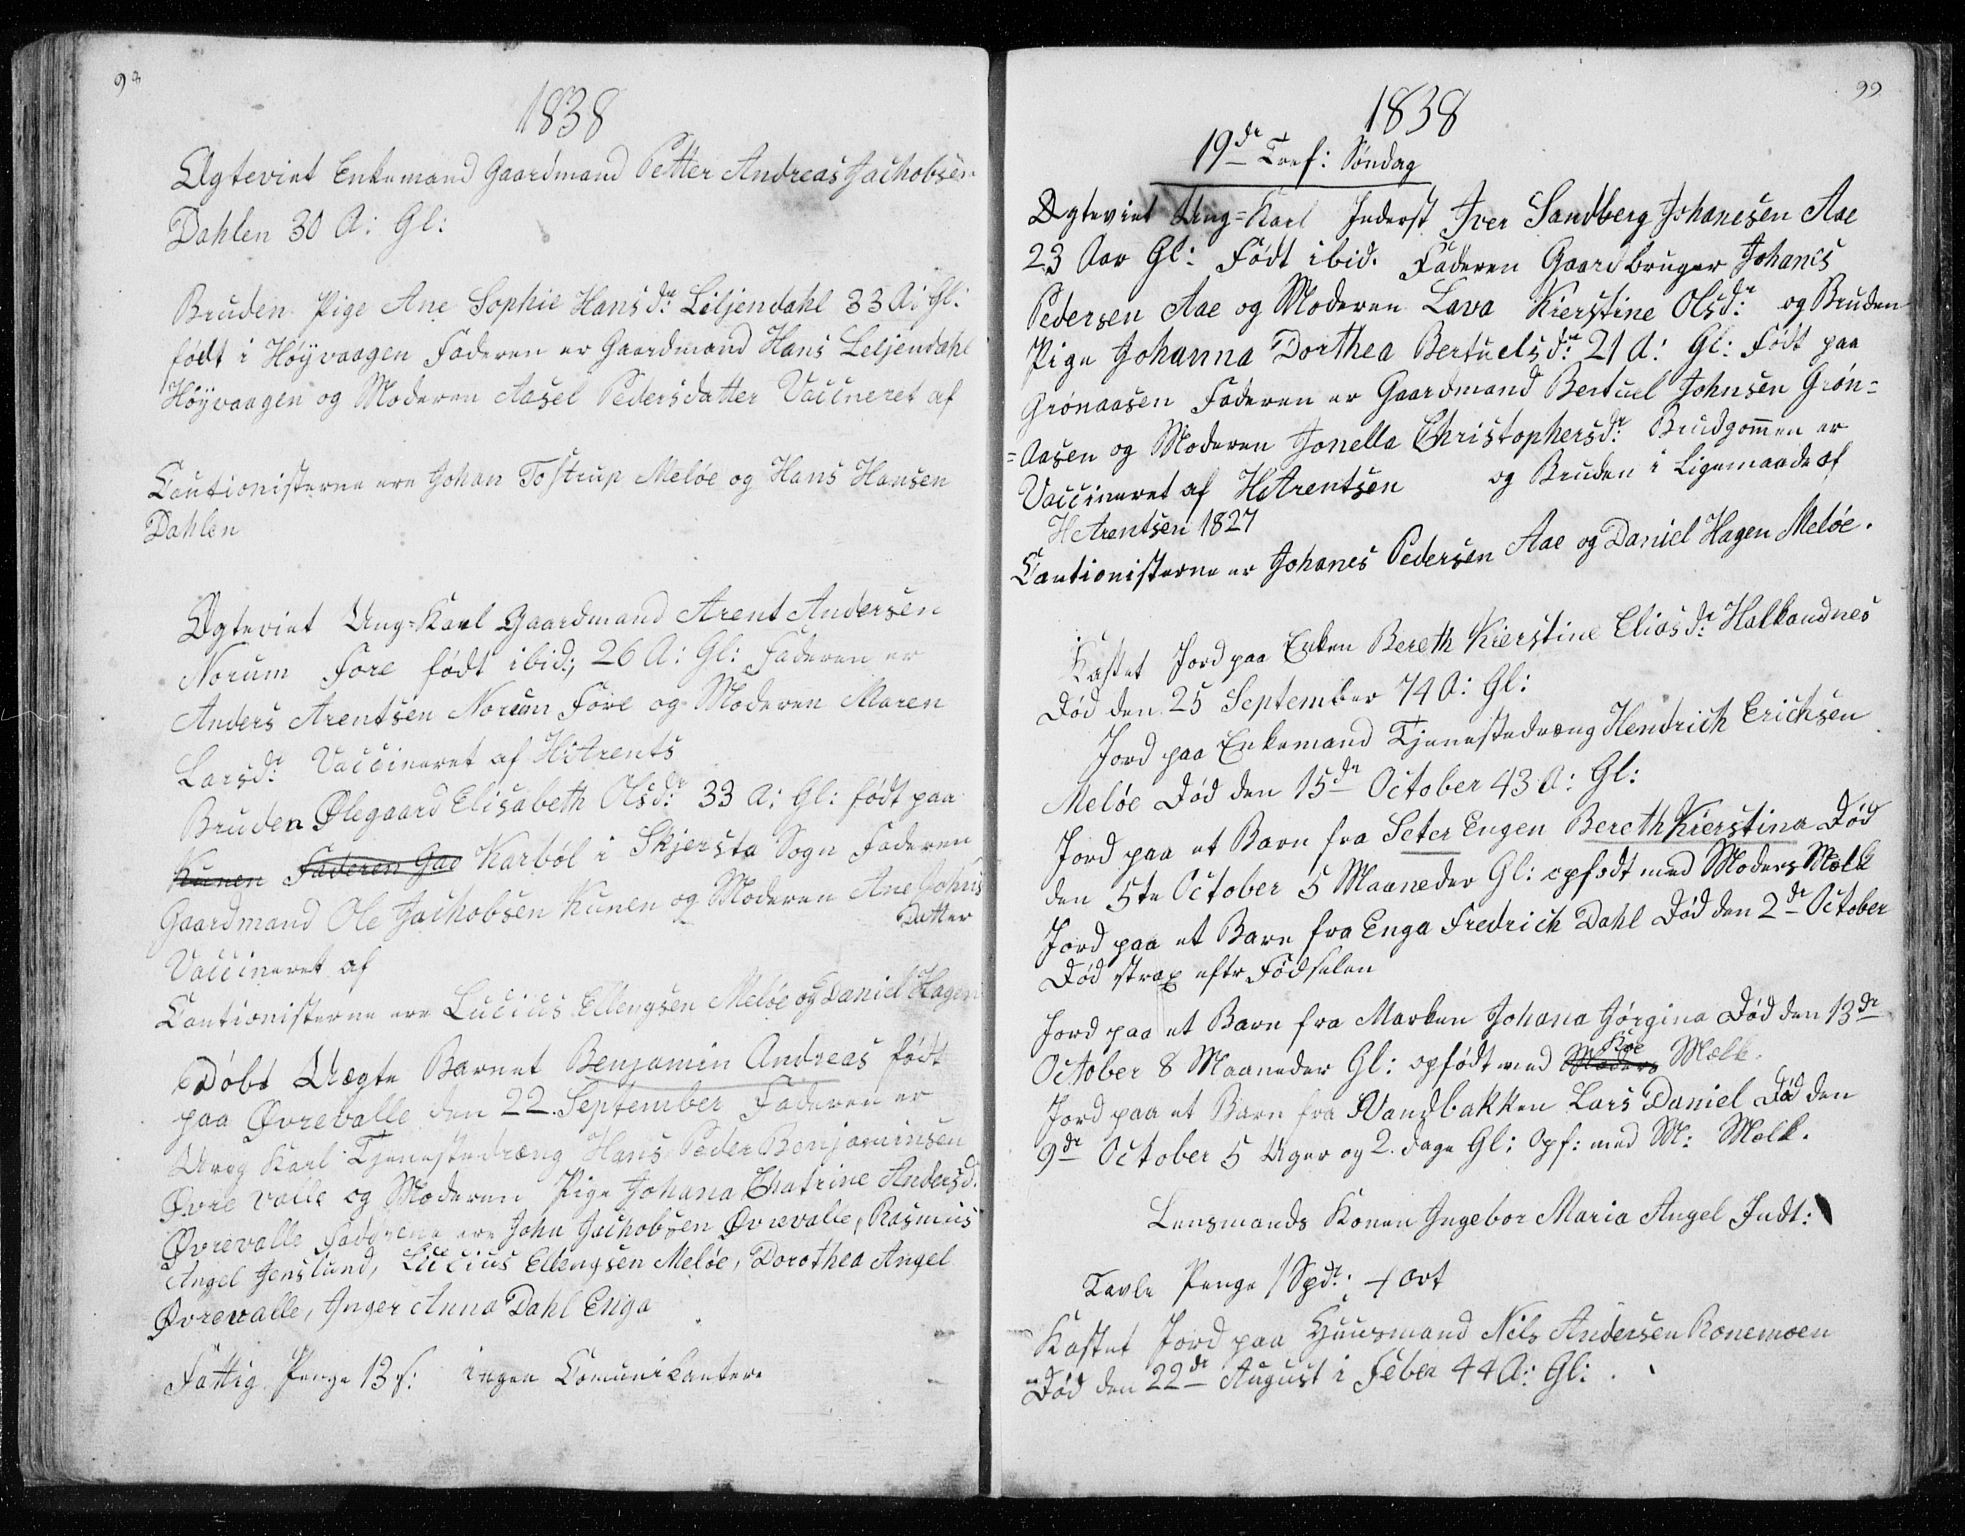 98
1838
Ægteviet Enkemand Gaardmand Petter Andreas Jachobsen
Dahlen 30 A: Gl:
Bruden Pige Ane Sophie Hansdr: Liljendahl 33 A: Gl:
født i Høÿvaagen Faderen er Gaardmand Hans Leljendahl
Høÿvaagen og Moderen Aasel Pedersdatter Vaccineret af
Cautionisterne ere Johan Tostrup Meløe og Hans Hansen
Dahlen
Ægteviet Ung=Karl Gaardmand Arent Andersen
Norum Fore født ibid:, 26 A: Gl: Faderen er
Anders Arentsen Norum Fore og Moderen Maren
Larsdr: Vaccineret af HArents
Bruden Ølegaard Elisabeth Olsdr: 33 A: Gl: født paa
Kunen Faderen Gaa Karból i Skjersta Sogn Faderen
Gaardmand Ole Jachobsen Kunen og Moderen Ane Johns
Datter
Vaccineret af
Cautionisterne ere Lucius Ellengsen Meløe og Daniel Hagen
Døbt Uægte Barnet Benjamin Andreas født
paa Øvrevalle den 22. September Faderen er
Ung Karl Tjenestedræng Hans Peder Benjaminsen
Øvre valle og Moderen Pige Johana Chatrine Andersd.
Øvrevalle Fadderne ere John Jachobsen Øvrevalle, Rasmus
Angel Jenslund, Lucius Ellengsen Meløe, Dorothea Angel
Øvrevalle, Inger Anna Dahl Enga
Fattig Penge 13 s: ingen Comunicanter.
99
1838
19de Tref: Søndag
Ægteviet Ung=Karl Inderst Iver Sandberg Johanesen Aae
23 Aar Gl: Født ibid. Faderen Gaardbruger Johanes
Pedersen Aae og Moderen Lava Kierstine Olsdr: og Bruden
Pige Johanna Dorthea Bertuelsdr: 21 A: Gl: Født paa
Grönaasen Faderen er Gaardmand Bertuel Johnsen Grøn=
=Aasen og Moderen Jonella Christophersdr: Brudgommen er
Vaccineret af HArentsen og Bruden i Ligemaade af
HArentsen 1827
Cautionisterne er Johanes Pedersen Aae og Daniel Hagen Meløe.
Kastet Jord paa Enken Bereth Kierstine Eliasdr: Halkandnes
Død den 25 September 74 A: Gl:
Jord paa Enkemand Tjenestedræng Hendrich Erichsen
Meløe Død den 15de October 43 A: Gl:
Jord paa et Barn fra Seter Engen Bereth Kierstina Død
den 5te October 5 Maaneder Gl: opfødt med Moders Mælk
Jord paa et Barn fra Enga Fredrich Dahl Død den 2de October
Død strax efter Fødselen
Jord paa et Barn fra Marken Johana Jørgina Død den 13de
October 8 Maaneder Gl: opfødt med Moders Koe Mælk.
Jord paa et Barn fra Vandbakken Lars Daniel Død den
9de October 5 Uger og 2. dage Gl: Opf: med M: Mælk.
Lensmands Konen Ingebor Maria Angel Indt:
Tavle Penge 1 Spdr: 4 ort
Kastet Jord paa Huusmand Nils Andersen Ronemoen
Død den 22de August i Feber 44 A: Gl: